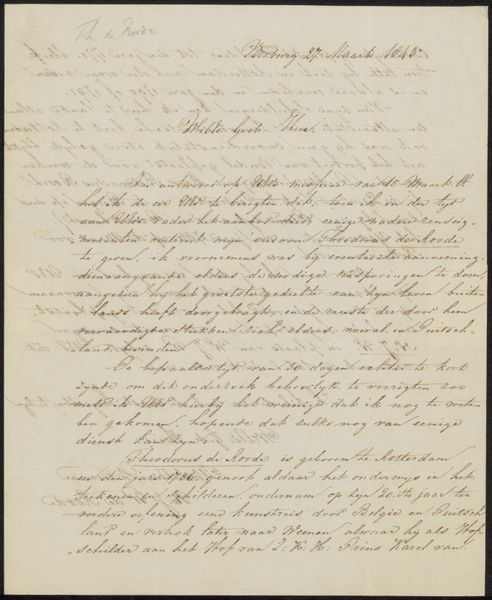 Th de Roode
Voorburg 27 Maart 1848.
WelEd. Gestr. Heer.
In antwoord op UEds missive van 15 Maart ll
heb ik de eer UEd te berigten dat, toen ik in den tyd
aan UEds vader het aanbod deed eenige nadere renseig-
nementen omtrent mijn oudoom Theodorus de Roode
te geven, ik voornemens was bij eventuele aanneming
dienaangaande elders de nodige nasporingen te doen,
aangezien hij het grootste gedeelte van zyn leven buiten
lands heeft doorgebragt, en de meeste der door hem
vervaardigde stukken zich elders, vooral in Duitsch-
land, bevinden.
De bepaalde tyd van 10 dagen echter te kort
zynde om dit onderzoek behoorlyk te verrigten zoo
meld ik UEd hierby het weinige dat ik nog te weten
ben gekomen, hopende dat zulks nog van eenige
dienst kan zyn.
Theodorus de Roode is geboren te Rotterdam
in den jare 1736, genoot aldaar het onderwys in het
teekenen en schilderen, ondernam op zyn 20ste jaar ter
verdere oefening eene kunstreis door Belgie en Duitsch
lant en vertrok later naar Weenen alwaar hy als Hof
schilder aan het Hof van Z. K. H. Prins Karel van